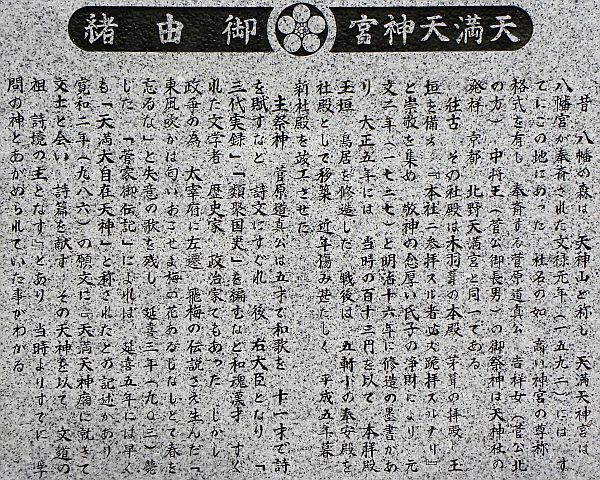 天満天神宮 御由緒
昔 八幡の森は 天神山と称し 天満天神宮は
八幡宮が奉斉された文禄元年（一五九二）には す
でにこの地にあった 社名の如く 高い神宮の尊称
格式を有し 奉斉する菅原道真公 吉祥女（菅公北
の方） 中将王（菅公御長男）の御祭神は天神社の
発祥 京都 北野天満宮と同一である
往古 その社殿は木羽葺の本殿 茅葺の拝殿 玉
垣を備え 「本社ニ参拝スル者必ズ跣拝スルナリ」
と崇敬を集め 敬神の念厚い氏子の浄財により 元
文二年（一七三七）と明治十六年に修造の墨書があ
り 大正五年には 当時の百十三円を以て 本拝殿
玉垣 鳥居を修造した 戦後は 五軒小の奉安殿を
社殿として移築 近年傷み甚だしく 平成五年暮
新社殿を竣工させた
主祭神 菅原道真公は五才で和歌を 十一才で詩
を賦すなど 詩文にすぐれ 後 右大臣となり 「
三代実録」「類聚国史」を編むなど和魂漢才 すぐ
れた文学者 歴史家 政治家でもあった しかし
政争の為 太宰府に左遷 飛梅の伝説さえ生んだ「
東風吹かば匂いおこせよ梅の花あるじなしとて春を
忘るな」と失意の歌を残し 延喜三年（九〇三）薨
じた 「菅家御伝記」によれば 延喜五年には早く
も「天満大自在天神」と称されたとの記述があり
寛和二年（九八六）の願文に「天満天神廟に就きて
文士と会い 詩篇を献ず その天神を以て 文道の
祖 詩境の主となす」とあり 当時よりすでに 学
問の神とあがめられていた事がわかる